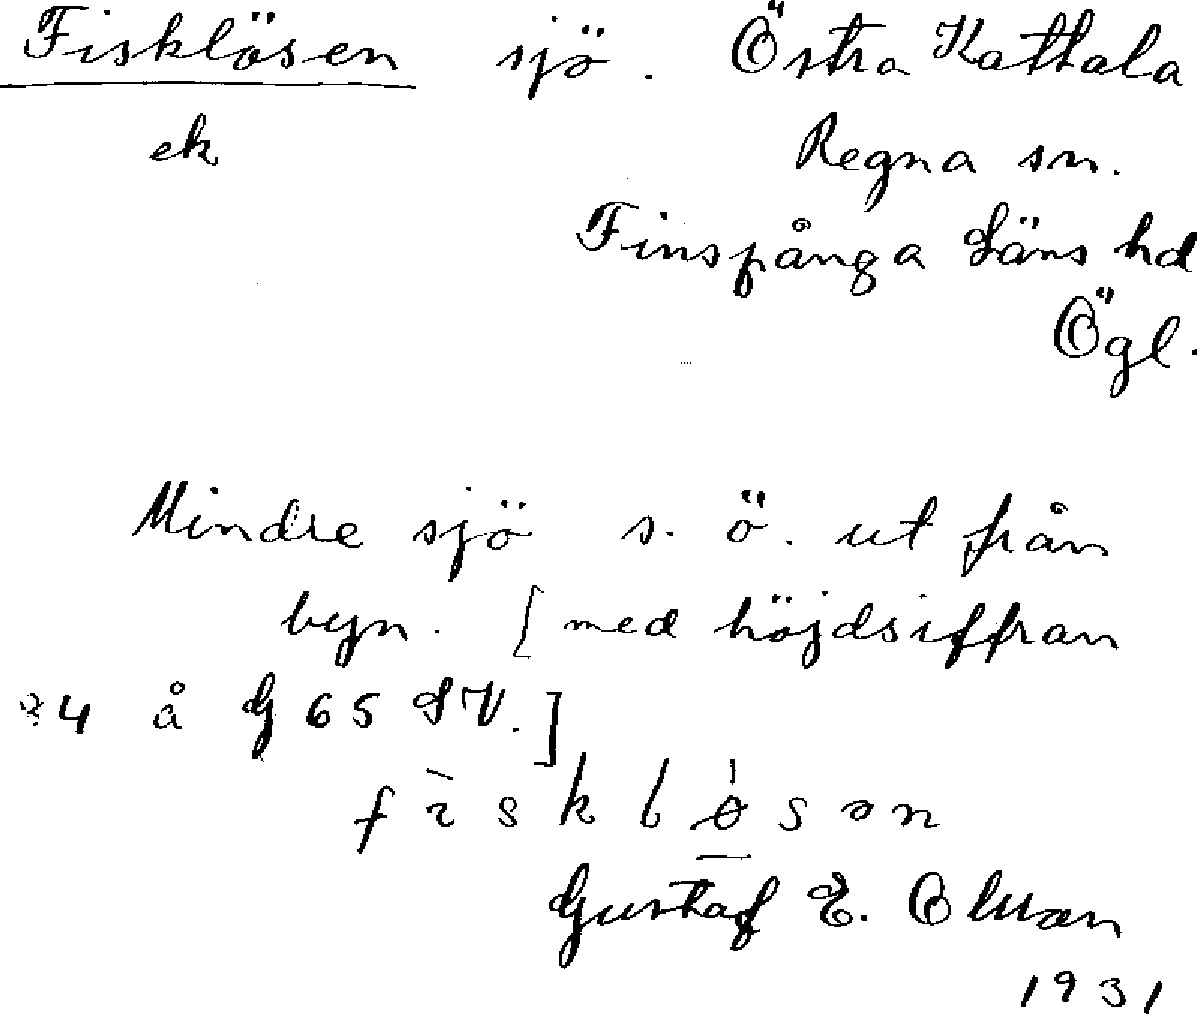 Fisklösen sjö. Östra Kattala
ek Regna sn.
Finspånga Läns hd
Ögl.
Mindre sjö s. ö. ut från
byn. [med höjdsiffran
4 å G 65 SV.]
Gustaf E.
1931